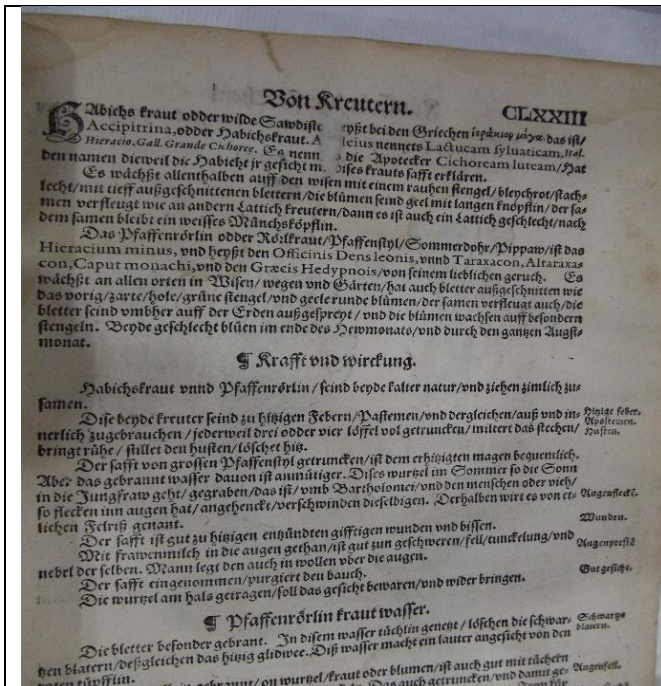 Von Kreutern. CLXXIII
HAbichs kraut odder wilde Sawdiste yßt bei den Griechen ἱεράκιον μέγα, das ist/
Accipitrina, odder Habichskraut. A leius nennets Lactucam syluaticam, Ital.
Hieracio. Gall. Grande Cichoree. Es nenn s die Apotecker Cichoream luteam/Hat
den namen dieweil die Habicht jr gesicht m ises krauts safft erklären.
Es wächßt allenthalben auff den wisen mit einem rauhen stengel/bleychrot/stach-
lecht/mit tieff außgeschnittenen blettern/die blümen seind geel mit langen knöpflin/der sa-
men verfleugt wie an andern Lattich kreutern/dann es ist auch ein Lattich geschlecht/nach
dem samen bleibt ein weisses Münchsköpflin.
Das Pfaffenrörlin odder Rörlkraut/Pfaffenstyl/Sommerdohr/Pippaw/ist das
Hieracium minus, vnd heyßt den Officinis Dens leonis, vnnd Taraxacon, Altaraxa-
con, Caput monachi, vnd den Græcis Hedypnois/von seinem lieblichen geruch. Es
wächßt an allen orten in Wisen/wegen vnd Gärten/hat auch bletter außgeschnitten wie
das vorig/zarte/hole/grüne stengel/vnd geele runde blümen/der samen verfleugt auch/die
bletter seind vmbher auff der Erden außgespreyt/vnd die blümen wachsen auff besondern
stengeln. Beyde geschlecht blüen im ende des Hewmonats/vnd durch den gantzen Augst-
monat.
¶ Krafft vnd wirckung.
Habichskraut vnnd Pfaffenrörlin/seind beyde kalter natur/vnd ziehen zimlich zu-
samen.
Dise beyde kreuter seind zu hitzigen Febern/Pastemen/vnd dergleichen/auß vnd in- Hitzige feber.
nerlich zugebrauchen/jederweil drei odder vier löffel vol getruncken/miltert das stechen/ Apostemen.
bringt rühe/stillet den husten/löschet hitz. Husten.
Der safft von grossen Pfaffenstyl getruncken/ist dem erhitzigten magen bequemlich.
Aber das gebrannt wasser dauon ist anmütiger. Dises wurtzel im Sommer so die Sonn
in die Jungfraw geht/gegraben/das ist/vmb Bartholomei/vnd den menschen oder vieh/
so flecken inn augen hat/angehenckt/verschwinden dieselbigen. Derhalben wirt es von et- Augenfleckē.
lichen Felriß genant.
Der safft ist gut zu hitzigen entzündten gifftigen wunden vnd bissen. Wunden.
Mit frawenmilch in die augen gethan/ist gut zun geschweren/fell/tunckelung/vnd Augenprestē
nebel der selben. Mann legt den auch in wollen vber die augen.
Der safft eingenommen/purgiert den bauch.
Die wurtzel am hals getragen/soll das gesicht bewaren/vnd wider bringen. Gut gesicht.
¶ Pfaffenrörlin kraut wasser.
Die bletter besonder gebrant. In disem wasser tüchlin genetzt/löschen die schwar- Schwartze
tzen blatern/deßgleichen das hitzig glidwee. Diß wasser macht ein lauter angesicht von den blatern.
roten tüpfflin.
gebrannt/on wurtzel/kraut oder blumen/ist auch gut mit tüchern Augenfell.
Das auch getruncken/vnd damit ge-